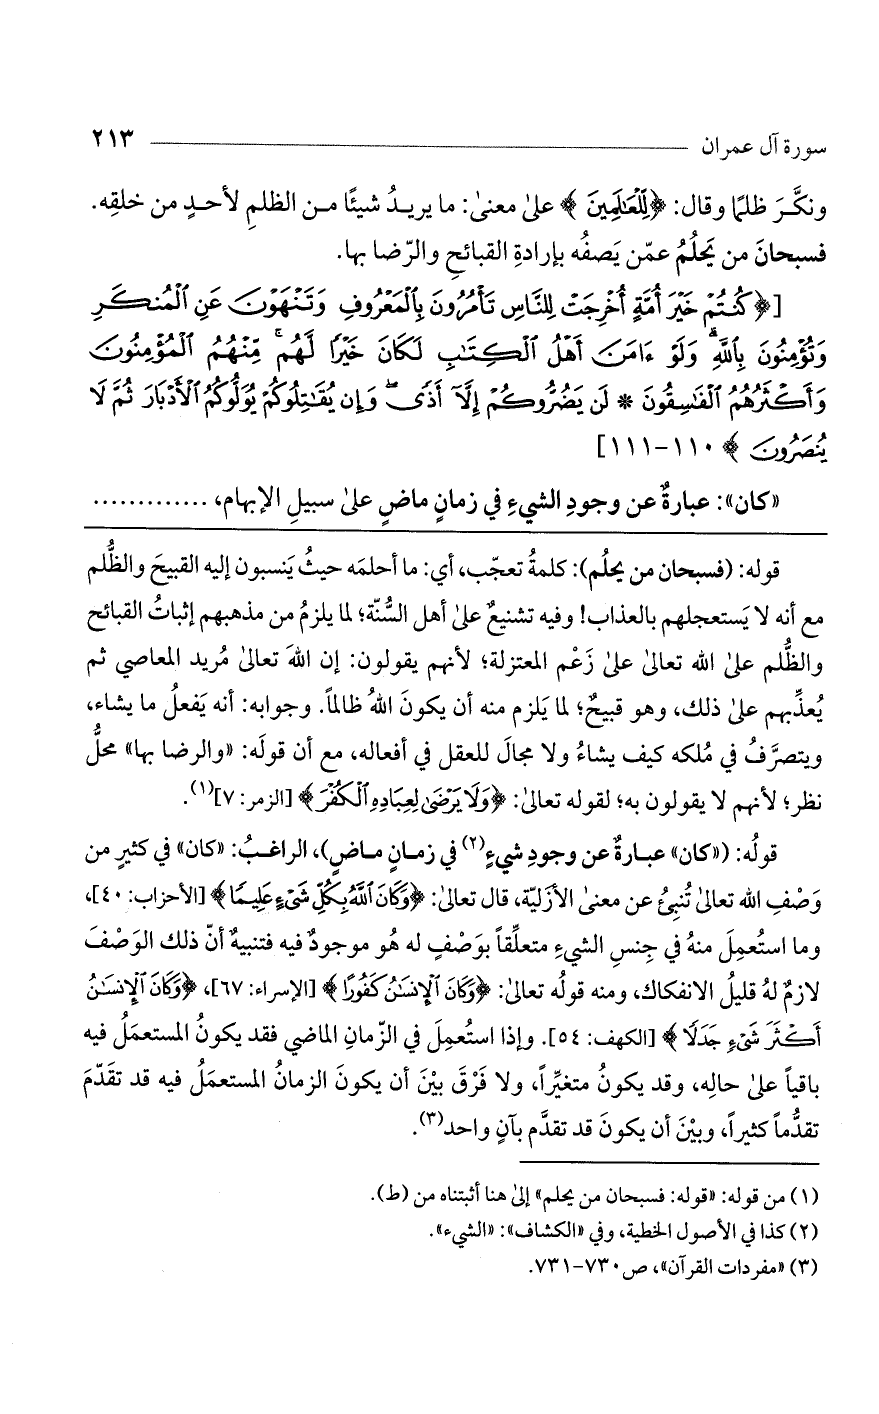 سورة آل عمران ــــــــــــــــــــ ٢١٣
ونكَّرَ ظلمًا وقال: ﴿لِّلْعَٰلَمِينَ﴾ علىٰ معنىٰ: ما يريدُ شيئًا من الظلمِ لأحدٍ من خلقِه.
فسبحانَ من يَحلُمُ عمّن يَصفُه بإرادةِ القبائحِ والرّضا بها.
[﴿كُنتُمْ خَيْرَ أُمَّةٍ أُخْرِجَتْ لِلنَّاسِ تَأْمُرُونَ بِٱلْمَعْرُوفِ وَتَنْهَوْنَ عَنِ ٱلْمُنكَرِ
وَتُؤْمِنُونَ بِٱللَّهِ ۗ وَلَوْ ءَامَنَ أَهْلُ ٱلْكِتَٰبِ لَكَانَ خَيْرًا لَّهُم ۚ مِّنْهُمُ ٱلْمُؤْمِنُونَ
وَأَكْثَرُهُمُ ٱلْفَٰسِقُونَ * لَن يَضُرُّوكُمْ إِلَّآ أَذًى ۖ وَإِن يُقَٰتِلُوكُمْ يُوَلُّوكُمُ ٱلْأَدْبَارَ ثُمَّ لَا
يُنصَرُونَ﴾ ١١٠-١١١]
«كان»: عبارةٌ عن وجودِ الشيءِ في زمانٍ ماضٍ علىٰ سبيلِ الإبهام، .............
قوله: (فسبحان من يحلُم): كلمةُ تعجّب، أي: ما أحلمَه حيثُ يَنسبون إليه القبيحَ والظُّلم
مع أنه لا يَستعجلهم بالعذاب! وفيه تشنيعٌ علىٰ أهل السُّنّة؛ لما يلزمُ من مذهبهم إثباتُ القبائح
والظُّلم علىٰ الله تعالىٰ علىٰ زَعْم المعتزلة؛ لأنهم يقولون: إن اللهَ تعالىٰ مُريد المعاصي ثم
يُعذِّبهم علىٰ ذلك، وهو قبيحٌ؛ لما يَلزم منه أن يكونَ اللهُ ظالماً. وجوابه: أنه يَفعلُ ما يشاء،
ويتصرَّفُ في مُلكه كيف يشاءُ ولا مجالَ للعقل في أفعاله، مع أن قولَه: «والرضا بها» محلُّ
نظر؛ لأنهم لا يقولون به؛ لقوله تعالىٰ: ﴿وَلَا يَرْضَىٰ لِعِبَادِهِ ٱلْكُفْرَ﴾ [الزمر: ٧](١).
قولُه: («كان» عبارةٌ عن وجودِ شيءٍ(٢) في زمانٍ ماضٍ)، الراغبُ: «كان» في كثيرٍ من
وَصْفِ الله تعالىٰ تُنبِئُ عن معنىٰ الأزليّة، قال تعالىٰ: ﴿وَكَانَ ٱللَّهُ بِكُلِّ شَىْءٍ عَلِيمًا﴾ [الأحزاب: ٤٠]،
وما استُعمِلَ منهُ في جِنسِ الشيءِ متعلِّقاً بوَصْفٍ له هُو موجودٌ فيه فتنبيهٌ أنّ ذلك الوَصْفَ
لازمٌ لهُ قليلُ الانفكاك، ومنه قولُه تعالىٰ: ﴿وَكَانَ ٱلْإِنسَٰنُ كَفُورًا﴾ [الإسراء: ٦٧]، ﴿وَكَانَ ٱلْإِنسَٰنُ
أَكْثَرَ شَىْءٍ جَدَلًا﴾ [الكهف: ٥٤]. وإذا استُعمِلَ في الزّمانِ الماضي فقد يكونُ المستعمَلُ فيه
باقياً علىٰ حالِه، وقد يكونُ متغيِّراً، ولا فَرْقَ بيْنَ أن يكونَ الزمانُ المستعمَلُ فيه قد تقَدّمَ
تقدُّماً كثيراً، وبيْنَ أن يكونَ قد تقدَّم بآنٍ واحد(٣).
(١) من قوله: «قوله: فسبحان من يحلم» إلىٰ هنا أثبتناه من (ط).
(٢) كذا في الأصول الخطية، وفي «الكشاف»: «الشيء».
(٣) «مفردات القرآن»، ص٧٣٠-٧٣١.